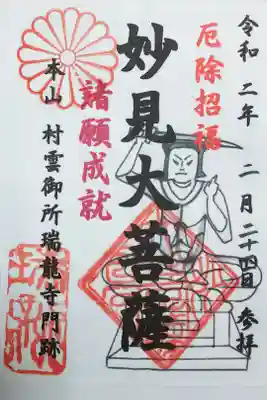 令和二年 二月二十四日 参拝
厄除招福
妙見大菩薩
諸願成就
本山 村雲御所瑞龍寺門跡